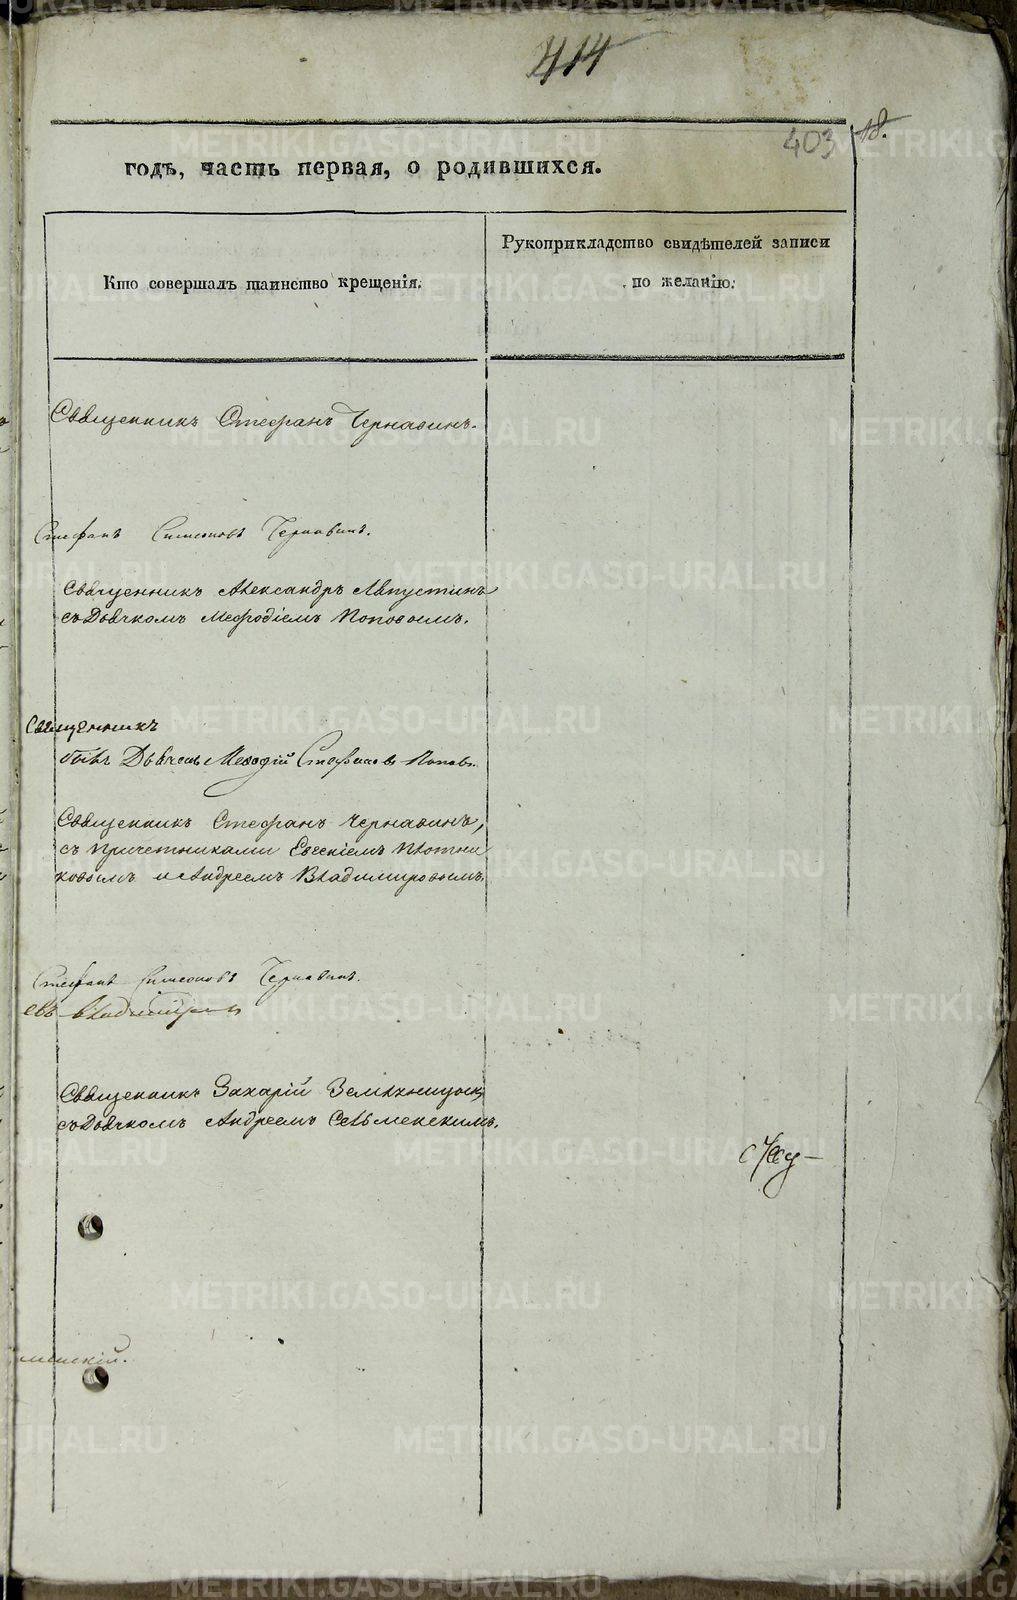 414
403
18.
годѣ, часть первая, о родившихся.
Кто совершалъ таинство крещенія.
Рукоприкладство свидѣтелей записи
по желанію.
Священникъ Стефанъ Чернавинъ.
Стефанъ Симеоновъ Чернавинъ.
Священникъ Александръ Августинъ
съ Дьячкомъ Мефодіемъ Поповымъ.
Священникъ
былъ Дьячекъ Меѳодій Стефановъ Поповъ.
Священникъ Стефанъ Чернавинъ,
съ причетниками Евсевіемъ Плотни
ковымъ и Андреемъ Владимировымъ.
Стефанъ Симеоновъ Чернавинъ.
евъ Владимировъ
Священникъ Захарій
съ Дьячкомъ Андреемъ Сельменскимъ.
менскій.
METRIKI.GASO-URAL.RU